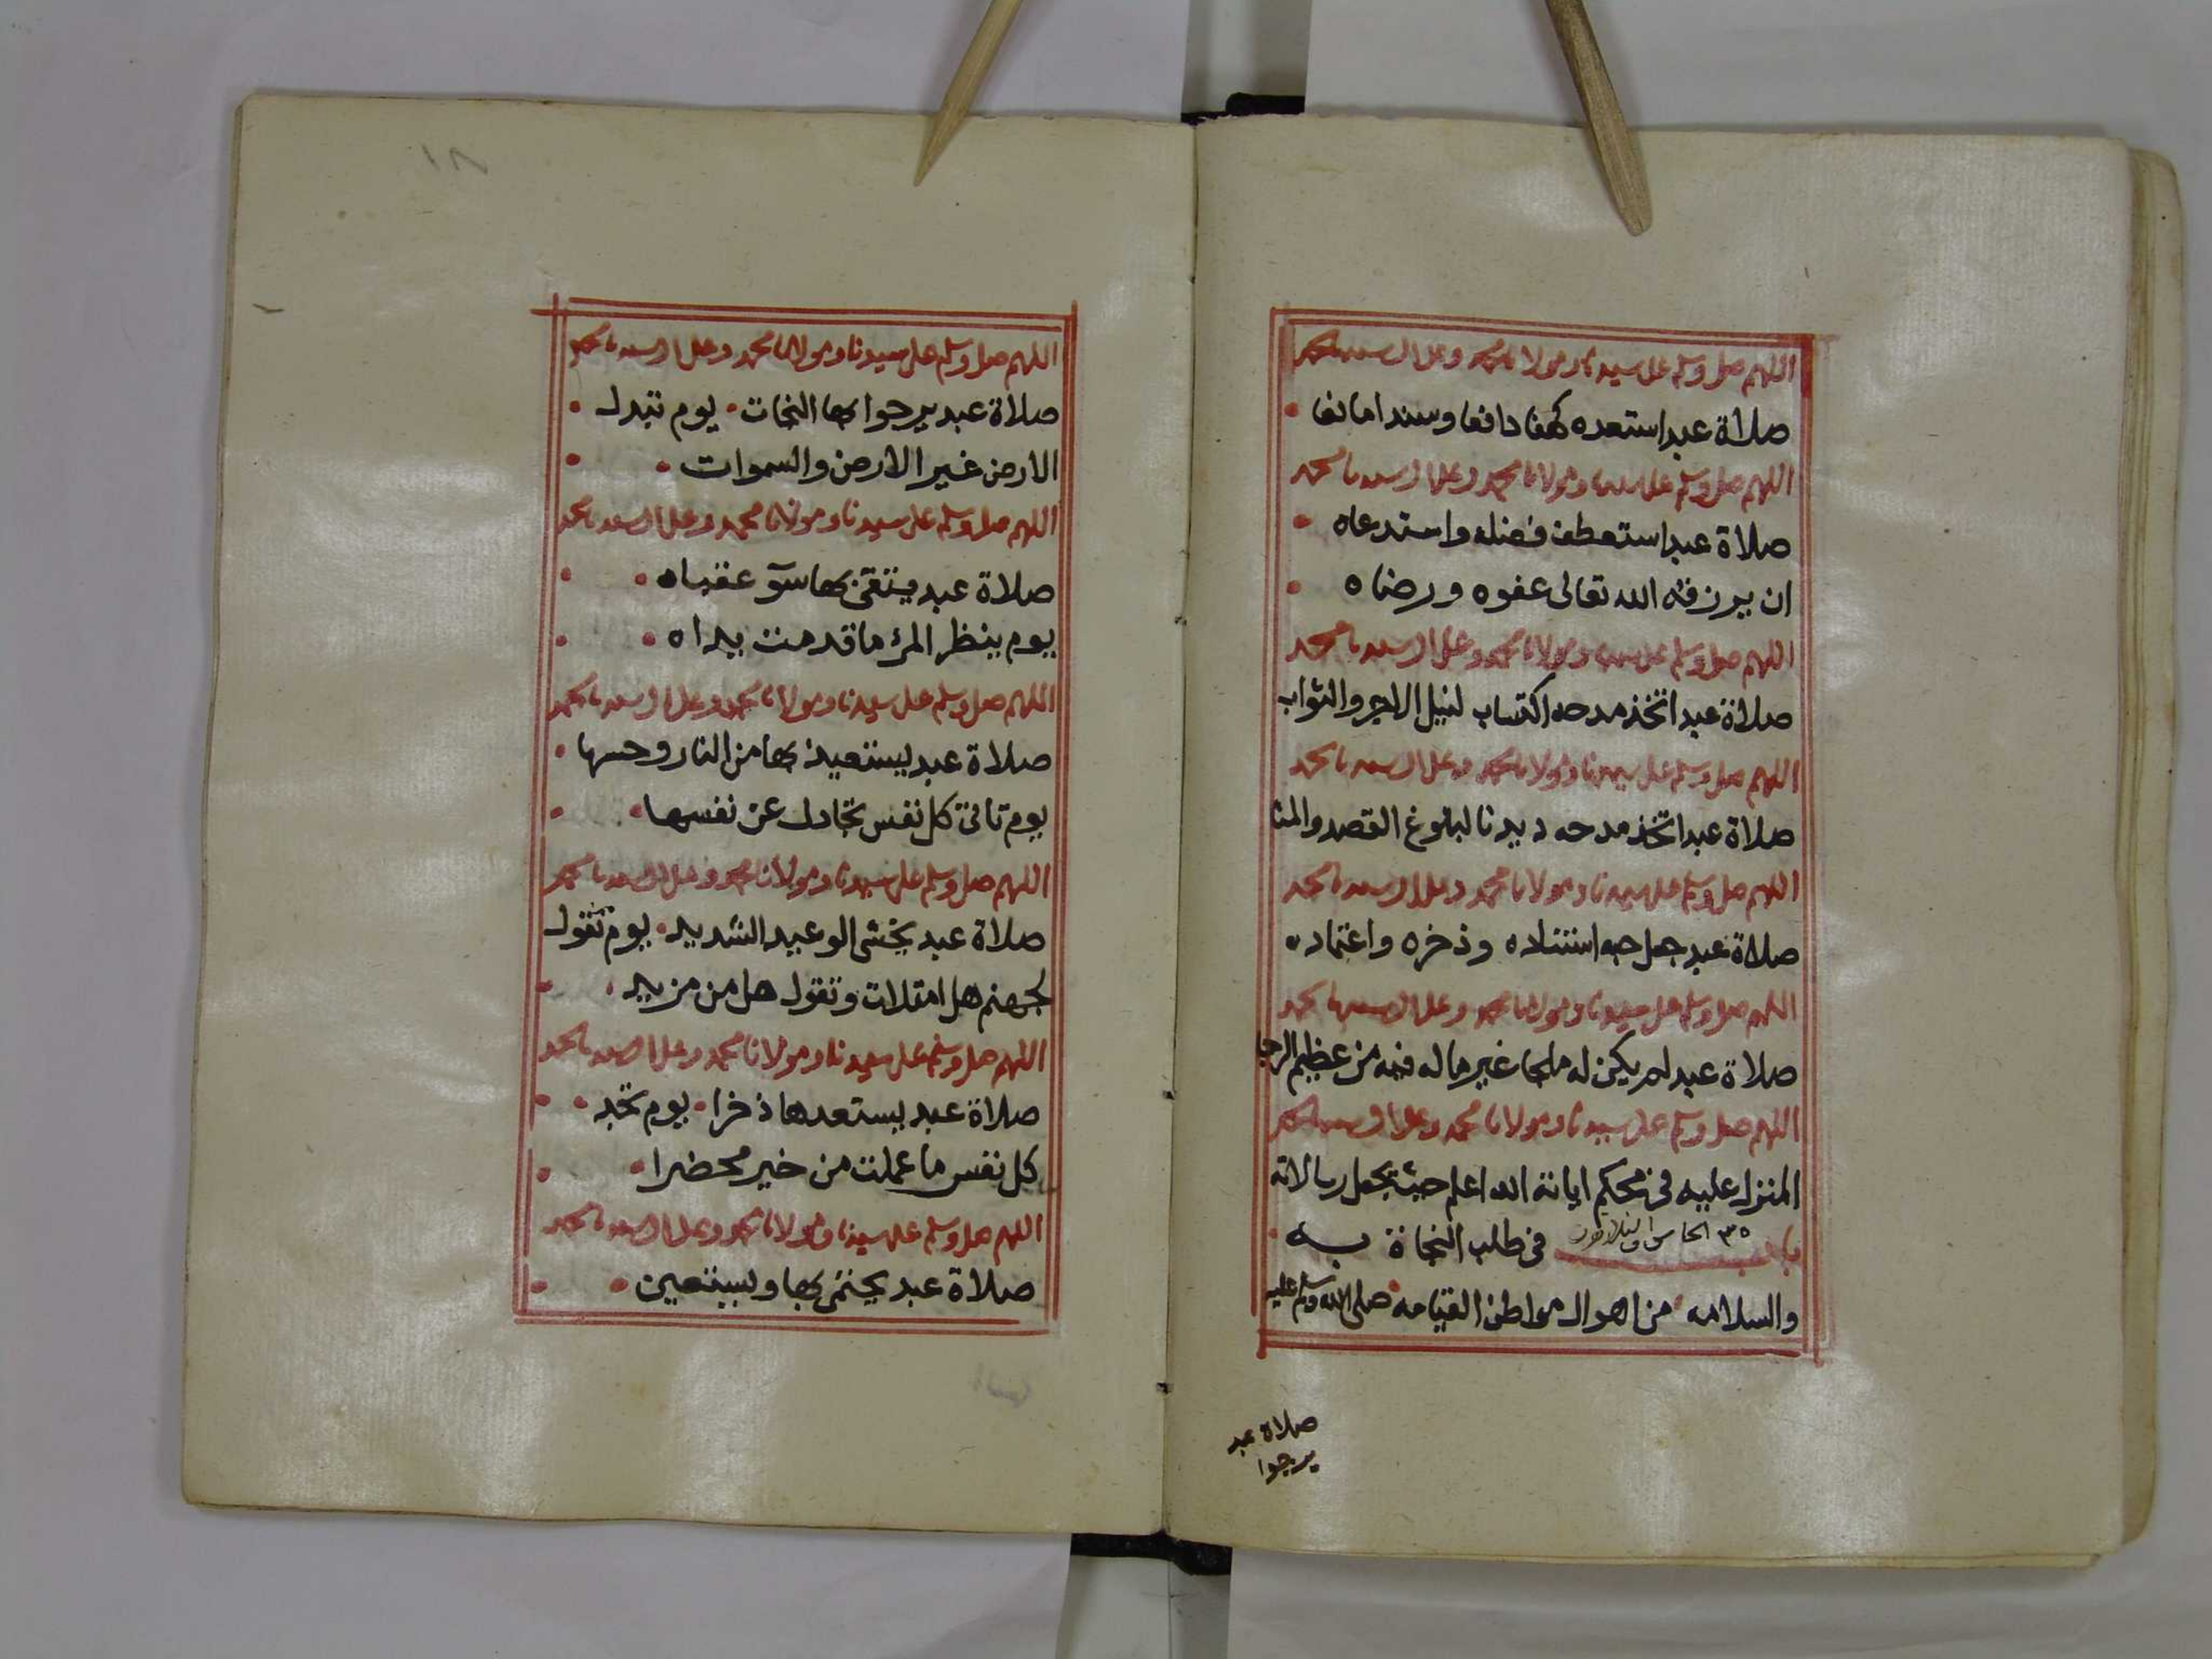 اللهم صل وسلم على سيدنا ومولانا محمد وعلى ال سيدنا محمد
صلاة عبد استعده كهفا دافعا وسندا مانعا
اللهم صل وسلم على سيدنا ومولانا محمد وعلى ال سيدنا محمد
صلاة عبد استعطف فضله واستدعاه
ان يرزقه الله تعالى عفوه ورضاه
اللهم صل وسلم على سيدنا ومولانا محمد وعلى ال سيدنا محمد
صلاة عبد اتخذ مدحه اكتساب لنيل الاجر والثواب
اللهم صل وسلم على سيدنا ومولانا محمد وعلى ال سيدنا محمد
صلاة عبد اتخذ مدحه ديدنا لبلوغ القصد والمنا
اللهم صل وسلم على سيدنا ومولانا محمد وعلى ال سيدنا محمد
صلاة عبد جعل حبه استناده وذخره واعتماده
اللهم صل وسلم على سيدنا ومولانا محمد وعلى ال سيدنا محمد
صلاة عبد لم يكن له ملجا غير ماله فيه من عظيم الرجا
اللهم صل وسلم على سيدنا ومولانا محمد وعلى ال سيدنا محمد
المنزل عليه في محكم اياته الله اعلم حيث يجعل رسالاته
باب ٣٥ الخامس والثلاثون في طلب النجاة به
والسلامه من اهوال مواطن القيامه صلى الله وسلم عليه
صلاة عبد
يرجوا
١٨
اللهم صل وسلم على سيدنا ومولانا محمد وعلى ال سيدنا محمد
صلاة عبد يرجوا بها النجات • يوم تبدل •
الارض غير الارض والسموات •
اللهم صل وسلم على سيدنا ومولانا محمد وعلى ال سيدنا محمد
صلاة عبد يتقي بها سوٓ عقباه •
يوم ينظر المرؤ ما قدمت يداه •
اللهم صل وسلم على سيدنا ومولانا محمد وعلى ال سيدنا محمد
صلاة عبد يستعيذ بها من النار وحسها •
يوم تاتي كل نفس تجادل عن نفسها •
اللهم صل وسلم على سيدنا ومولانا محمد وعلى ال سيدنا محمد
صلاة عبد يخشى الوعيد الشديد • يوم نقول
لجهنم هل امتلات وتقول هل من مزيد •
اللهم صل وسلم على سيدنا ومولانا محمد وعلى ال سيدنا محمد
صلاة عبد يستعدها ذخرا • يوم تجد •
كل نفس ما عملت من خير محضرا •
اللهم صل وسلم على سيدنا ومولانا محمد وعلى ال سيدنا محمد
صلاة عبد يحتمي بها ويستعين •